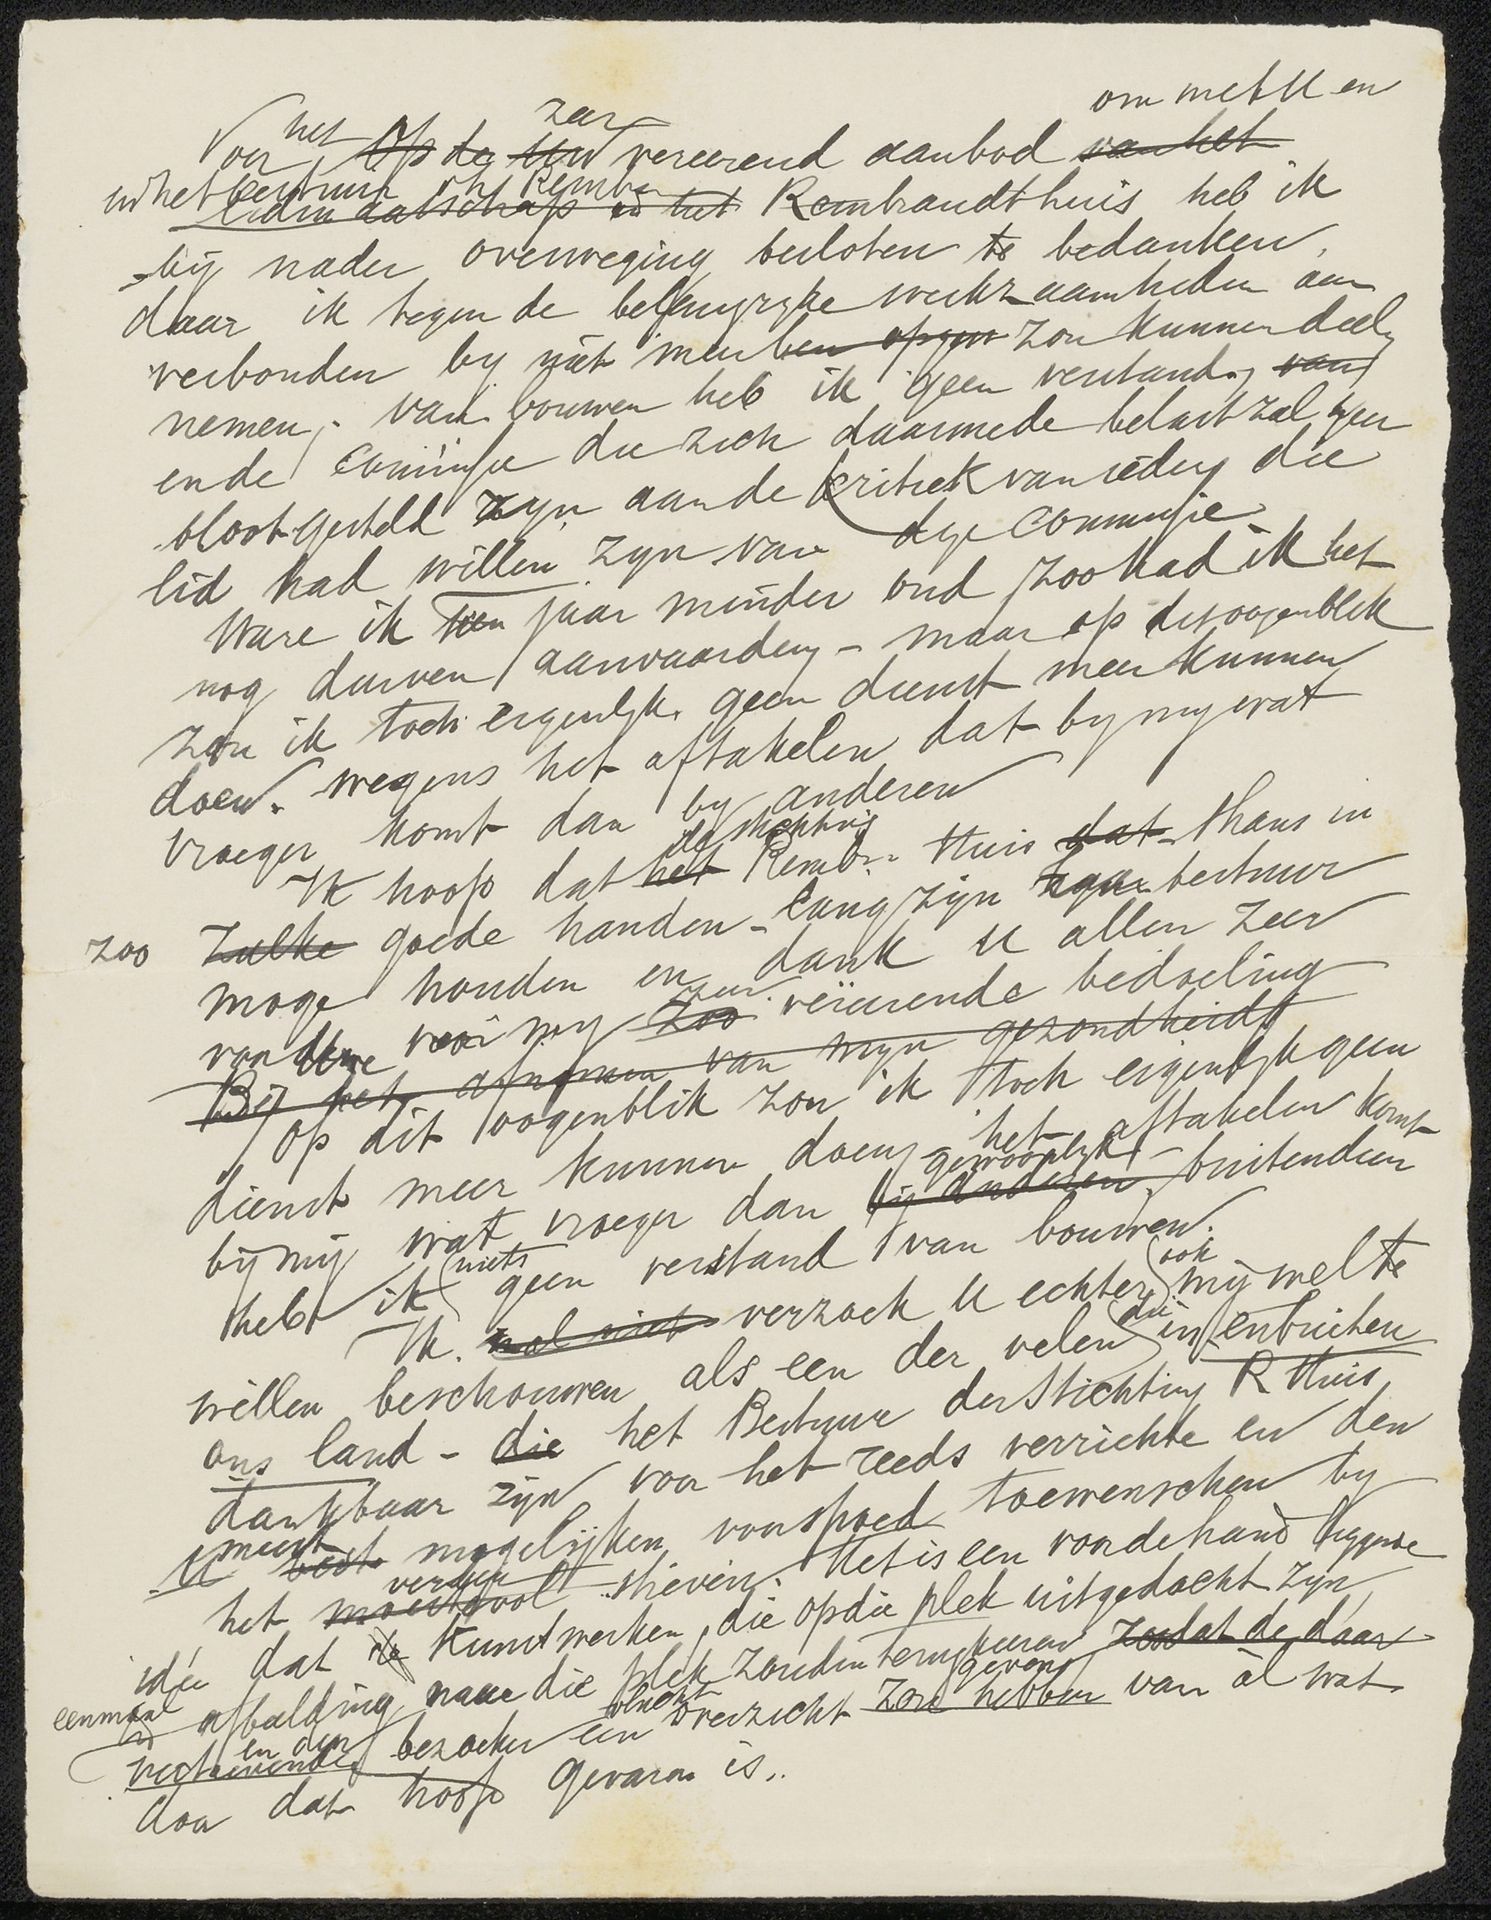 om met U en
Voor het Op de Uw zeer vereerend aanbod van het
in het bestuur v/h Rembr
Lidmaatschap v het Rembrandthuis heb ik
bij nader overweging besloten te bedanken,
daar ik tegen de belangryke werkzaamheden aan
verbonden by niet meer zou kunnen deel
nemen, van bouwen heb ik geen verstand, van
en de Commissie die zich daarmede belast zal zyn
bloot gesteld zyn aan de kritiek van ieder die
lid had willen zyn van die Commissie
Ware ik tien jaar minder oud zoo had ik het
nog durven aanvaarden – maar op dit oogenblik
zou ik toch eigenlyk geen dienst meer kunnen
doen. wegens het aftakelen dat by my wat
vroeger komt dan by anderen
Ik hoop dat het de stichting Rembr. Huis dat thans in
zoo zulke goede handen – lang zijn bestuur
moge houden en dank U allen zeer
van Uwe voor my zoo zeer vereerende bedoeling
Bij het afnemen van mijn gezondheid
op dit oogenblik zou ik toch eigenlyk geen
dienst meer kunnen doen, het aftakelen komt
bij mij wat vroeger dan bij anderen gewoonlyk – buitendien
heb ik niets geen verstand van bouwen.
Ik zal niet verzoek U echter ook mij wel te
willen beschouwen als een der velen die in en buiten
ons land – die het Bestuur der Stichting R Huis
dankbaar zijn voor het reeds verrichte en den
U meest best mogelijken voorspoed toewenschen by
het moeitevol verder streven. Het is een voor de hand liggende
idée dat de Kunstwerken, die op die plek uitgedacht zyn
eenmaal in afbeelding naar die plek zouden terugkeeren zoodat de daar
en den bezoeker een overzicht geven zou hebben van àl wat
door dat hoofd gevaren is..